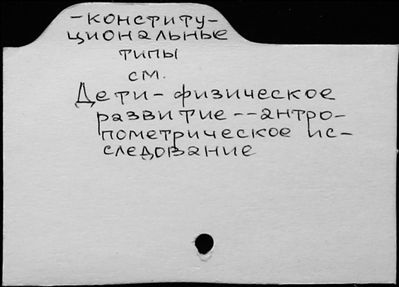 -конститу-
циональные
типы
см.
Дети-физическое
развитие--антро-
пометрическое ис-
следование